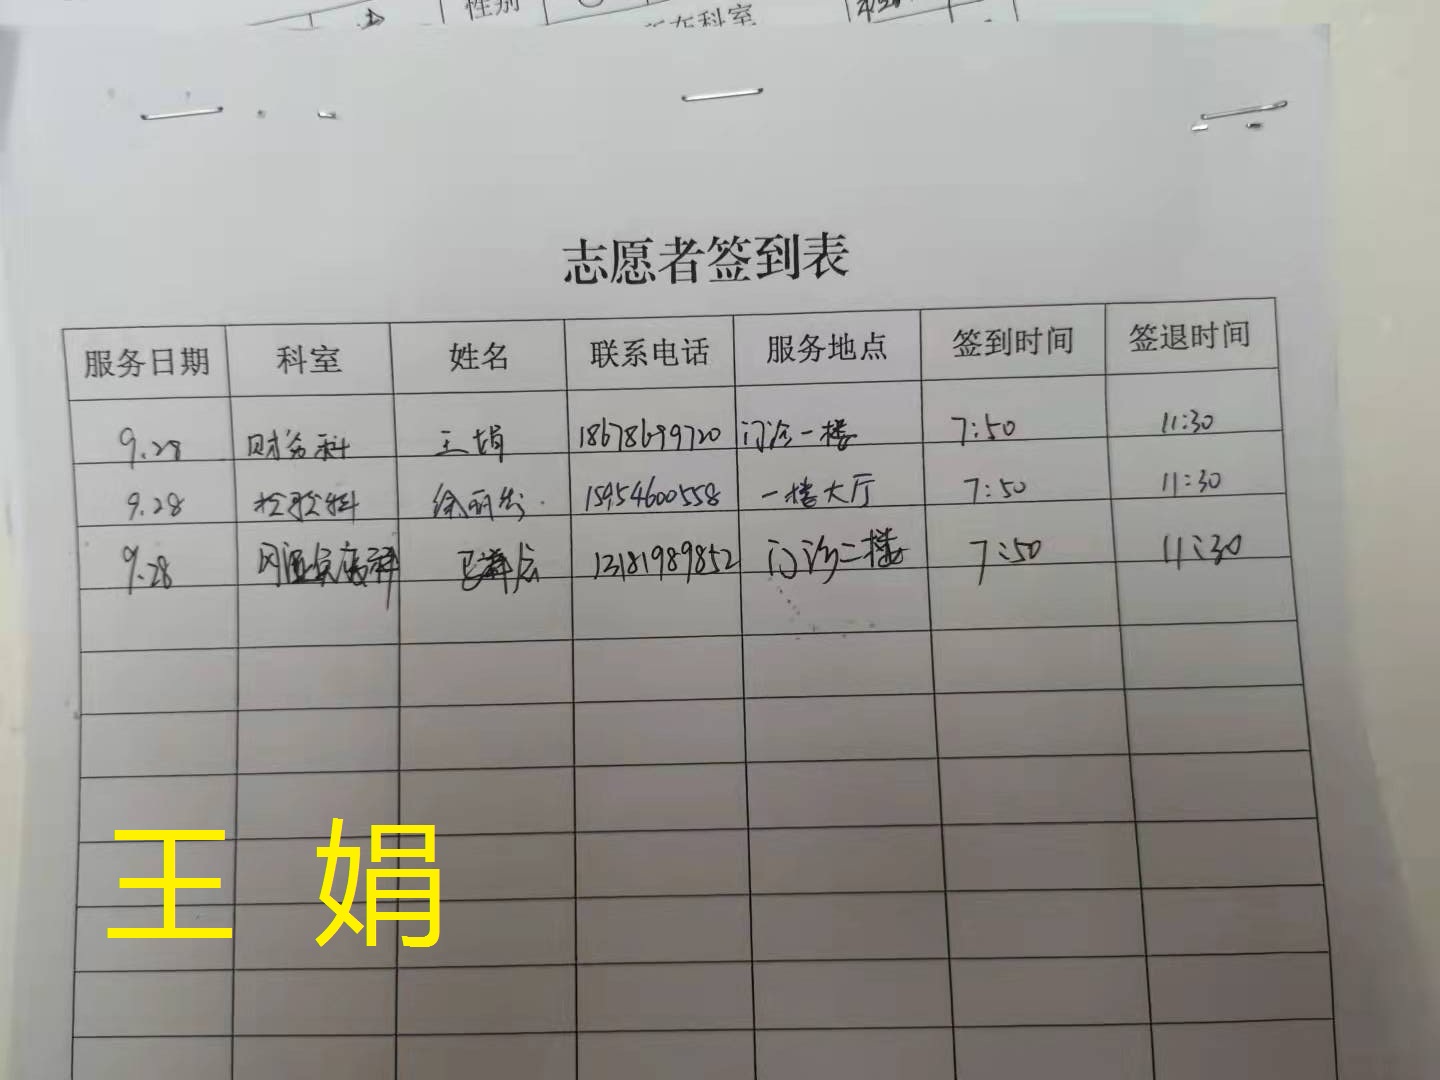 性别
所在科室
志愿者签到表
服务日期 科室 姓名 联系电话 服务地点 签到时间 签退时间
9.28 财务科 王娟 18678699720 门诊一楼 7:50 11:30
9.28 检验科 徐丽 15954600558 一楼大厅 7:50 11:30
9.28 13181989852 门诊二楼 7:50 11:30
王 娟